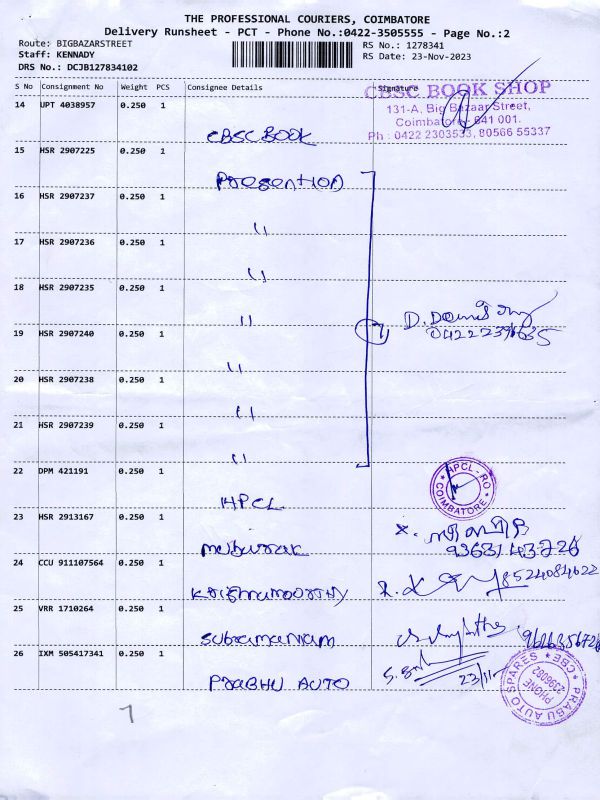 THE PROFESSIONAL COURIERS, COIMBATORE
Delivery Runsheet - PCT - Phone No.:0422-3505555 - Page No.:2
Route: BIGBAZARSTREET
Staff: KENNADY
DRS No.: DCJB127834102
RS No.: 1278341
RS Date: 23-Nov-2023
S No Consignment No Weight PCS Consignee Details Signature
14 UPT 4038957 0.250 1
CBSC BOOK
CBSC BOOK SHOP
131-A, Big Bazaar Street,
Coimbatore - 641 001.
Ph : 0422 2303533, 80566 55337
15 HSR 2907225 0.250 1
Presention
16 HSR 2907237 0.250 1
11
17 HSR 2907236 0.250 1
11
18 HSR 2907235 0.250 1
11
19 HSR 2907240 0.250 1
11
7)
20 HSR 2907238 0.250 1
11
21 HSR 2907239 0.250 1
11
22 DPM 421191 0.250 1
HPCL
HPCL-RO
COIMBATORE
23 HSR 2913167 0.250 1
24 CCU 911107564 0.250 1
KRISHNAMOORTHY
8524081622
25 VRR 1710264 0.250 1
Subramaniam
26 IXM 505417341 0.250 1
PRABHU AUTO
23/11
PRABU AUTO SPARES CBE
PHONE
2396082
7